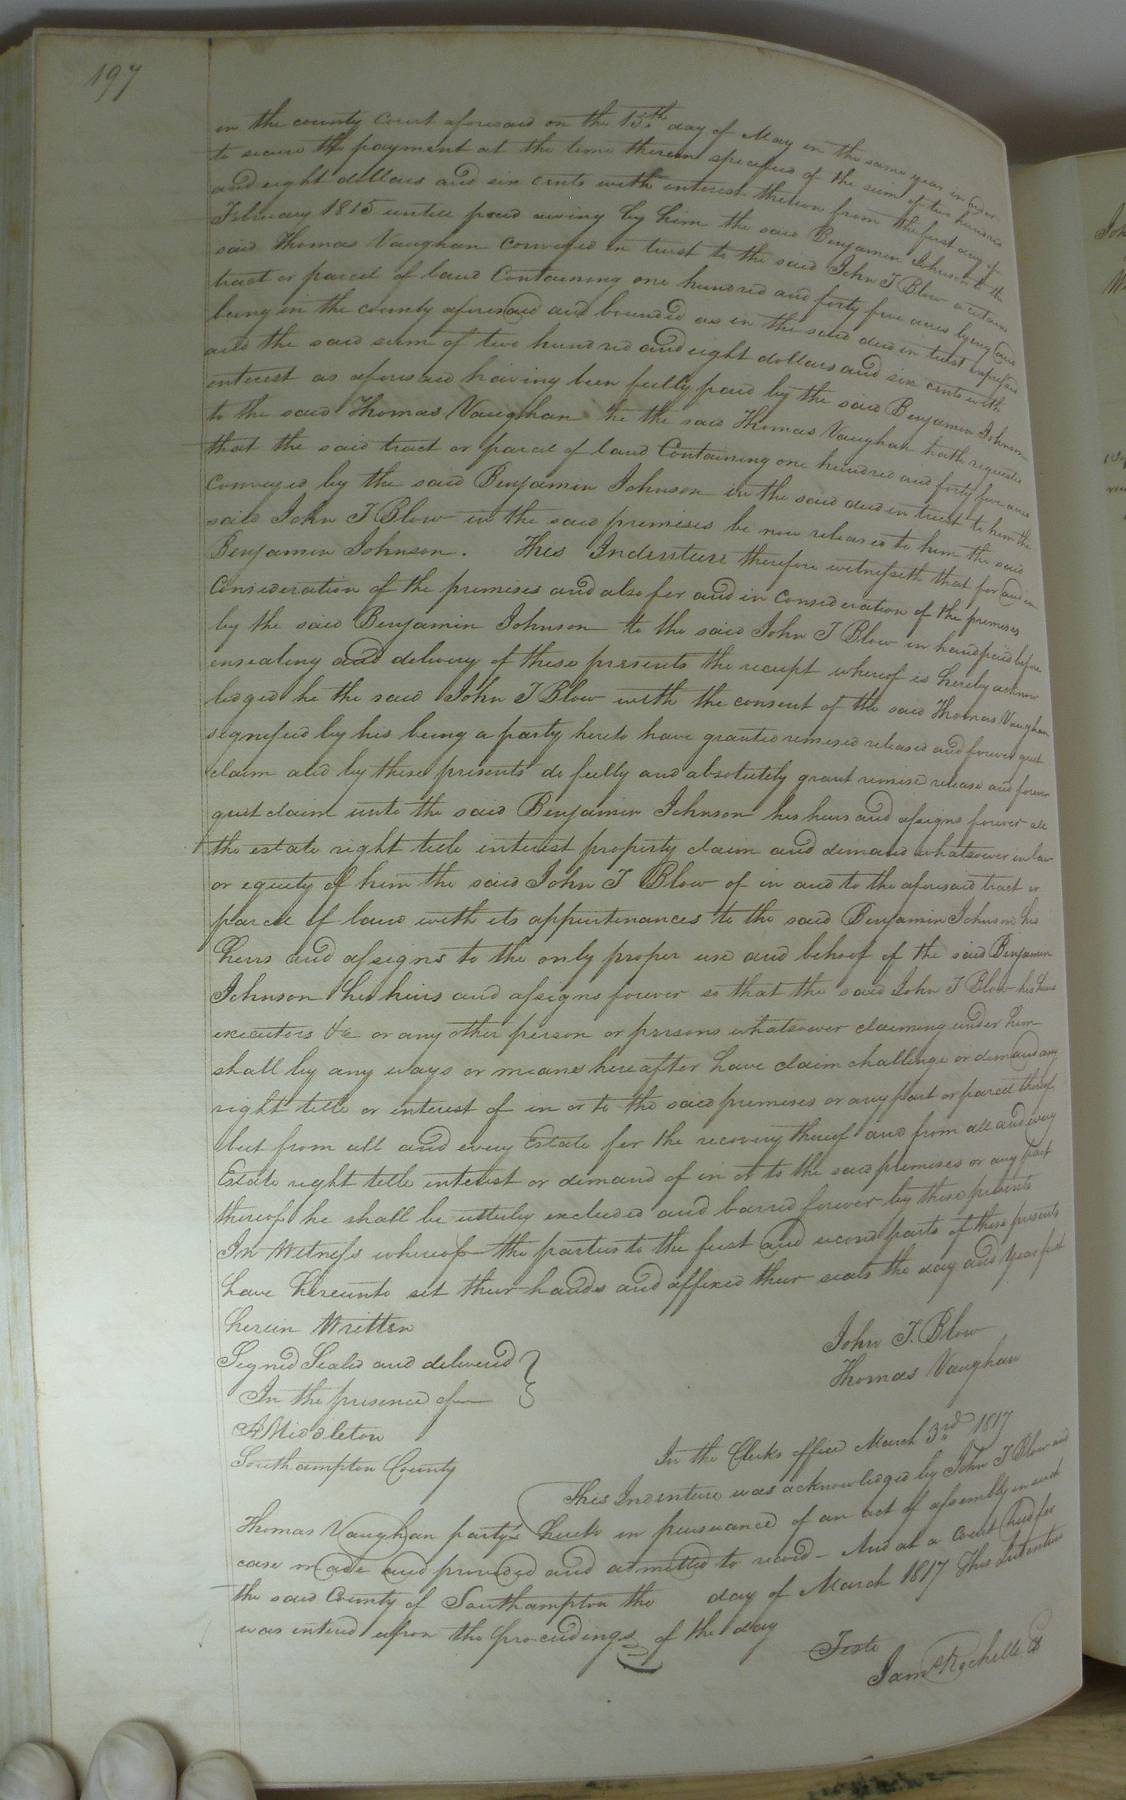 197
in the county Court aforesaid on the 15th day of May in the same year in order
to secure the payment at the time therein specified of the sum of two hundred
and eight dollars and six cents with interest thereon from the first day of
February 1815 untill paid owing by him the said Benjamin Johnson to the
said Thomas Vaughan conveyed in trust to the said John T Blow a certain
tract or parcel of land Containing one hundred and forty five acres lying and
being in the county aforesaid and bounded as in the said deed in trust expressed
and the said sum of two hundred and eight dollars and six cents with
interest as aforesaid having been fully paid by the said Benjamin Johnson
to the said Thomas Vaughan he the said Thomas Vaughan hath requested
that the said tract or parcel of land Containing one hundred and forty five acres
Conveyed by the said Benjamin Johnson in the said deed in trust to him the
said John T Blow in the said premises be now released to him the said
Benjamin Johnson. This Indenture therefore witnesseth that for and in
Consideration of the premises and also for and in consideration of the premises
by the said Benjamin Johnson to the said John T Blow in hand paid before
ensealing and delivery of these presents the receipt whereof is hereby acknow
ledged he the said John T Blow with the consent of the said Thomas Vaughan
signified by his being a party hereto have granted remised released and forever quit
claim and by these presents do fully and absolutely grant remise release and forever
quit claim unto the said Benjamin Johnson his heirs and assigns forever all
the estate right title interest property claim and demand whatsoever in law
or equity of him the said John T Blow of in and to the aforesaid tract or
parcel of land with its appurtenances to the said Benjamin Johnson his
heirs and assigns to the only proper use and behoof of the said Benjamin
Johnson his heirs and assigns forever so that the said John T Blow his heirs
executors &c or any other person or persons whatsoever claiming under him
shall by any ways or means hereafter have claim challenge or demand any
right title or interest of in or to the said premises or any part or parcel thereof
but from all and every Estate for the recovery thereof and from all and every
Estate right title interest or demand of in or to the said premises or any part
thereof he shall be utterly excluded and barred forever by these presents
In Witness whereof the parties to the first and second parts of these presents
have hereunto set their hands and affixed their seals the day and year first
herein Written
Signed Sealed and delivered
In the presence of
A Middleton
John T. Blow
Thomas Vaughan
Southampton County
In the Clerks office March 3rd 1817
This Indenture was acknowledged by John T Blow and
Thomas Vaughan partys hereto in pursuance of an act of assembly in such
case made and provided and admitted to record - And at a Court held for
the said County of Southampton the day of March 1817 This Indenture
was entered upon the proceedings of the day
Teste
Jams Rochelle Ck